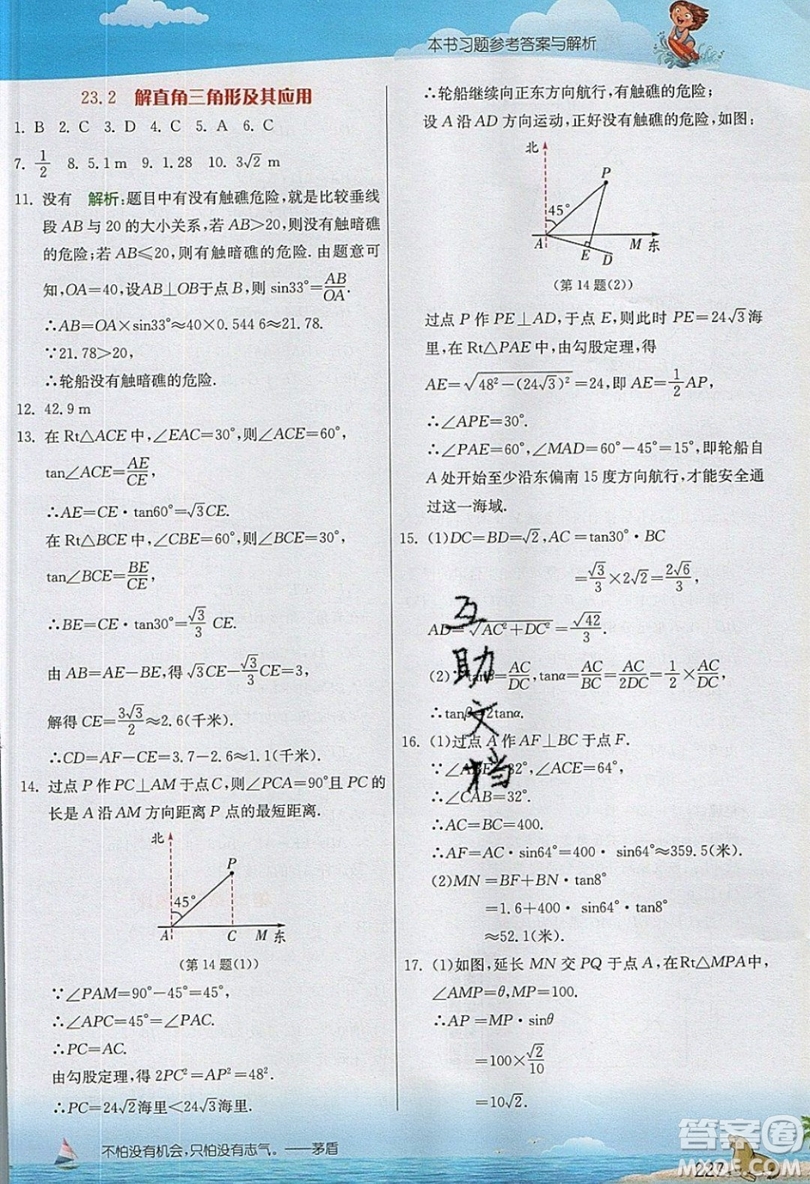 本书习题参考答案与解析
23.2 解直角三角形及其应用
1. B 2. C 3. D 4. C 5. A 6. C
7. 1/2 8. 5.1 m 9. 1.28 10. 3√2 m
11. 没有 解析:题目中有没有触礁危险,就是比较垂线
段 AB 与 20 的大小关系,若 AB>20,则没有触暗礁
的危险;若 AB≤20,则有触礁的危险. 由题意可
知,OA=40,设AB⊥OB于点 B,则 sin33°=AB/OA.
∴AB=OA×sin33°≈40×0.544 6≈21.78.
∵21.78>20,
∴轮船没有触暗礁的危险.
12. 42.9 m
13. 在 Rt△ACE 中,∠EAC=30°,则∠ACE=60°,
tan∠ACE=AE/CE,
∴AE=CE·tan60°=√3CE.
在 Rt△BCE 中,∠CBE=60°,则∠BCE=30°,
tan∠BCE=BE/CE,
∴BE=CE·tan30°=√3/3 CE.
由 AB=AE-BE,得 √3CE-√3/3 CE=3,
解得 CE=3√3/2≈2.6(千米).
∴CD=AF-CE=3.7-2.6=1.1(千米).
14. 过点 P 作 PC⊥AM 于点 C,∠PCA=90°且 PC 的
长是 A 沿 AM 方向距离 P 点的最短距离.
北
P
45°
A C M 东
(第 14 题(1))
∵∠PAM=90°-45°=45°,
∴∠APC=45°=∠PAC.
∴PC=AC.
由勾股定理,得 2PC²=AP²=48².
∴PC=24√2海里<24√3海里.
∴轮船继续向正东方向航行,有触礁的危险;
设 A 沿 AD 方向运动,正好没有触礁的危险,如图:
北
P
45°
A E D M 东
(第 14 题(2))
过点 P 作 PE⊥AD,于点 E,则有 PE=24√3海
里,在 Rt△PAE 中,由勾股定理,得
AE=√(48²-(24√3)²)=24,即 AE=1/2 AP,
∴∠APE=30°.
∴∠PAE=60°,∠MAD=60°-45°=15°,即轮船自
A 处开始至少沿东偏南 15 度方向航行,才能安全通
过这一海域.
15. (1)DC=BD=√2,AC=tan30°·BC
=√3/3×2√2=2√6/3,
AD=√(AC²+DC²)=√42/3.
(2)tanβ=AC/DC,tanα=AC/BC=AC/2DC=1/2×AC/DC,
∴tanβ=2tanα.
16. (1)过点 A 作 AF⊥BC 于点 F.
∵∠ABE=32°,∠ACE=64°,
∴∠CAB=32°.
∴AC=BC=400.
∴AF=AC·sin64°=400·sin64°≈359.5(米).
(2)MN=BF+BN·tan8°
=1.6+400·tan8°
≈52.1(米).
17. (1)如图,延长 MN 交 PQ 于点 A,在Rt△MPA中,
∠AMP=θ,MP=100,
∴AP=MP·sinθ
=100×√2/10
=10√2.
互
助
文
档
不怕没有机会,只怕没有志气。——茅盾
227
答案圈
MXQE.COM